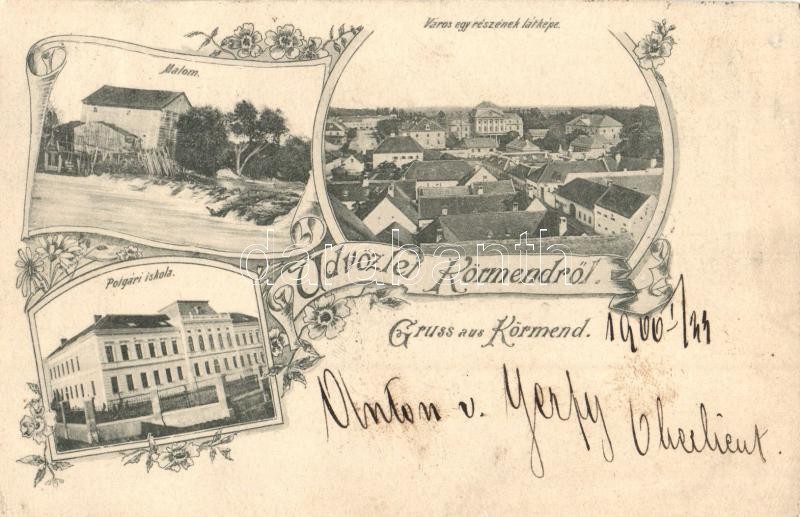 Malom.
Város egy részének látképe.
Polgári iskola.
Üdvözlet Körmendről.
Gruss aus Körmend.
1900
Anton v.
darabanth